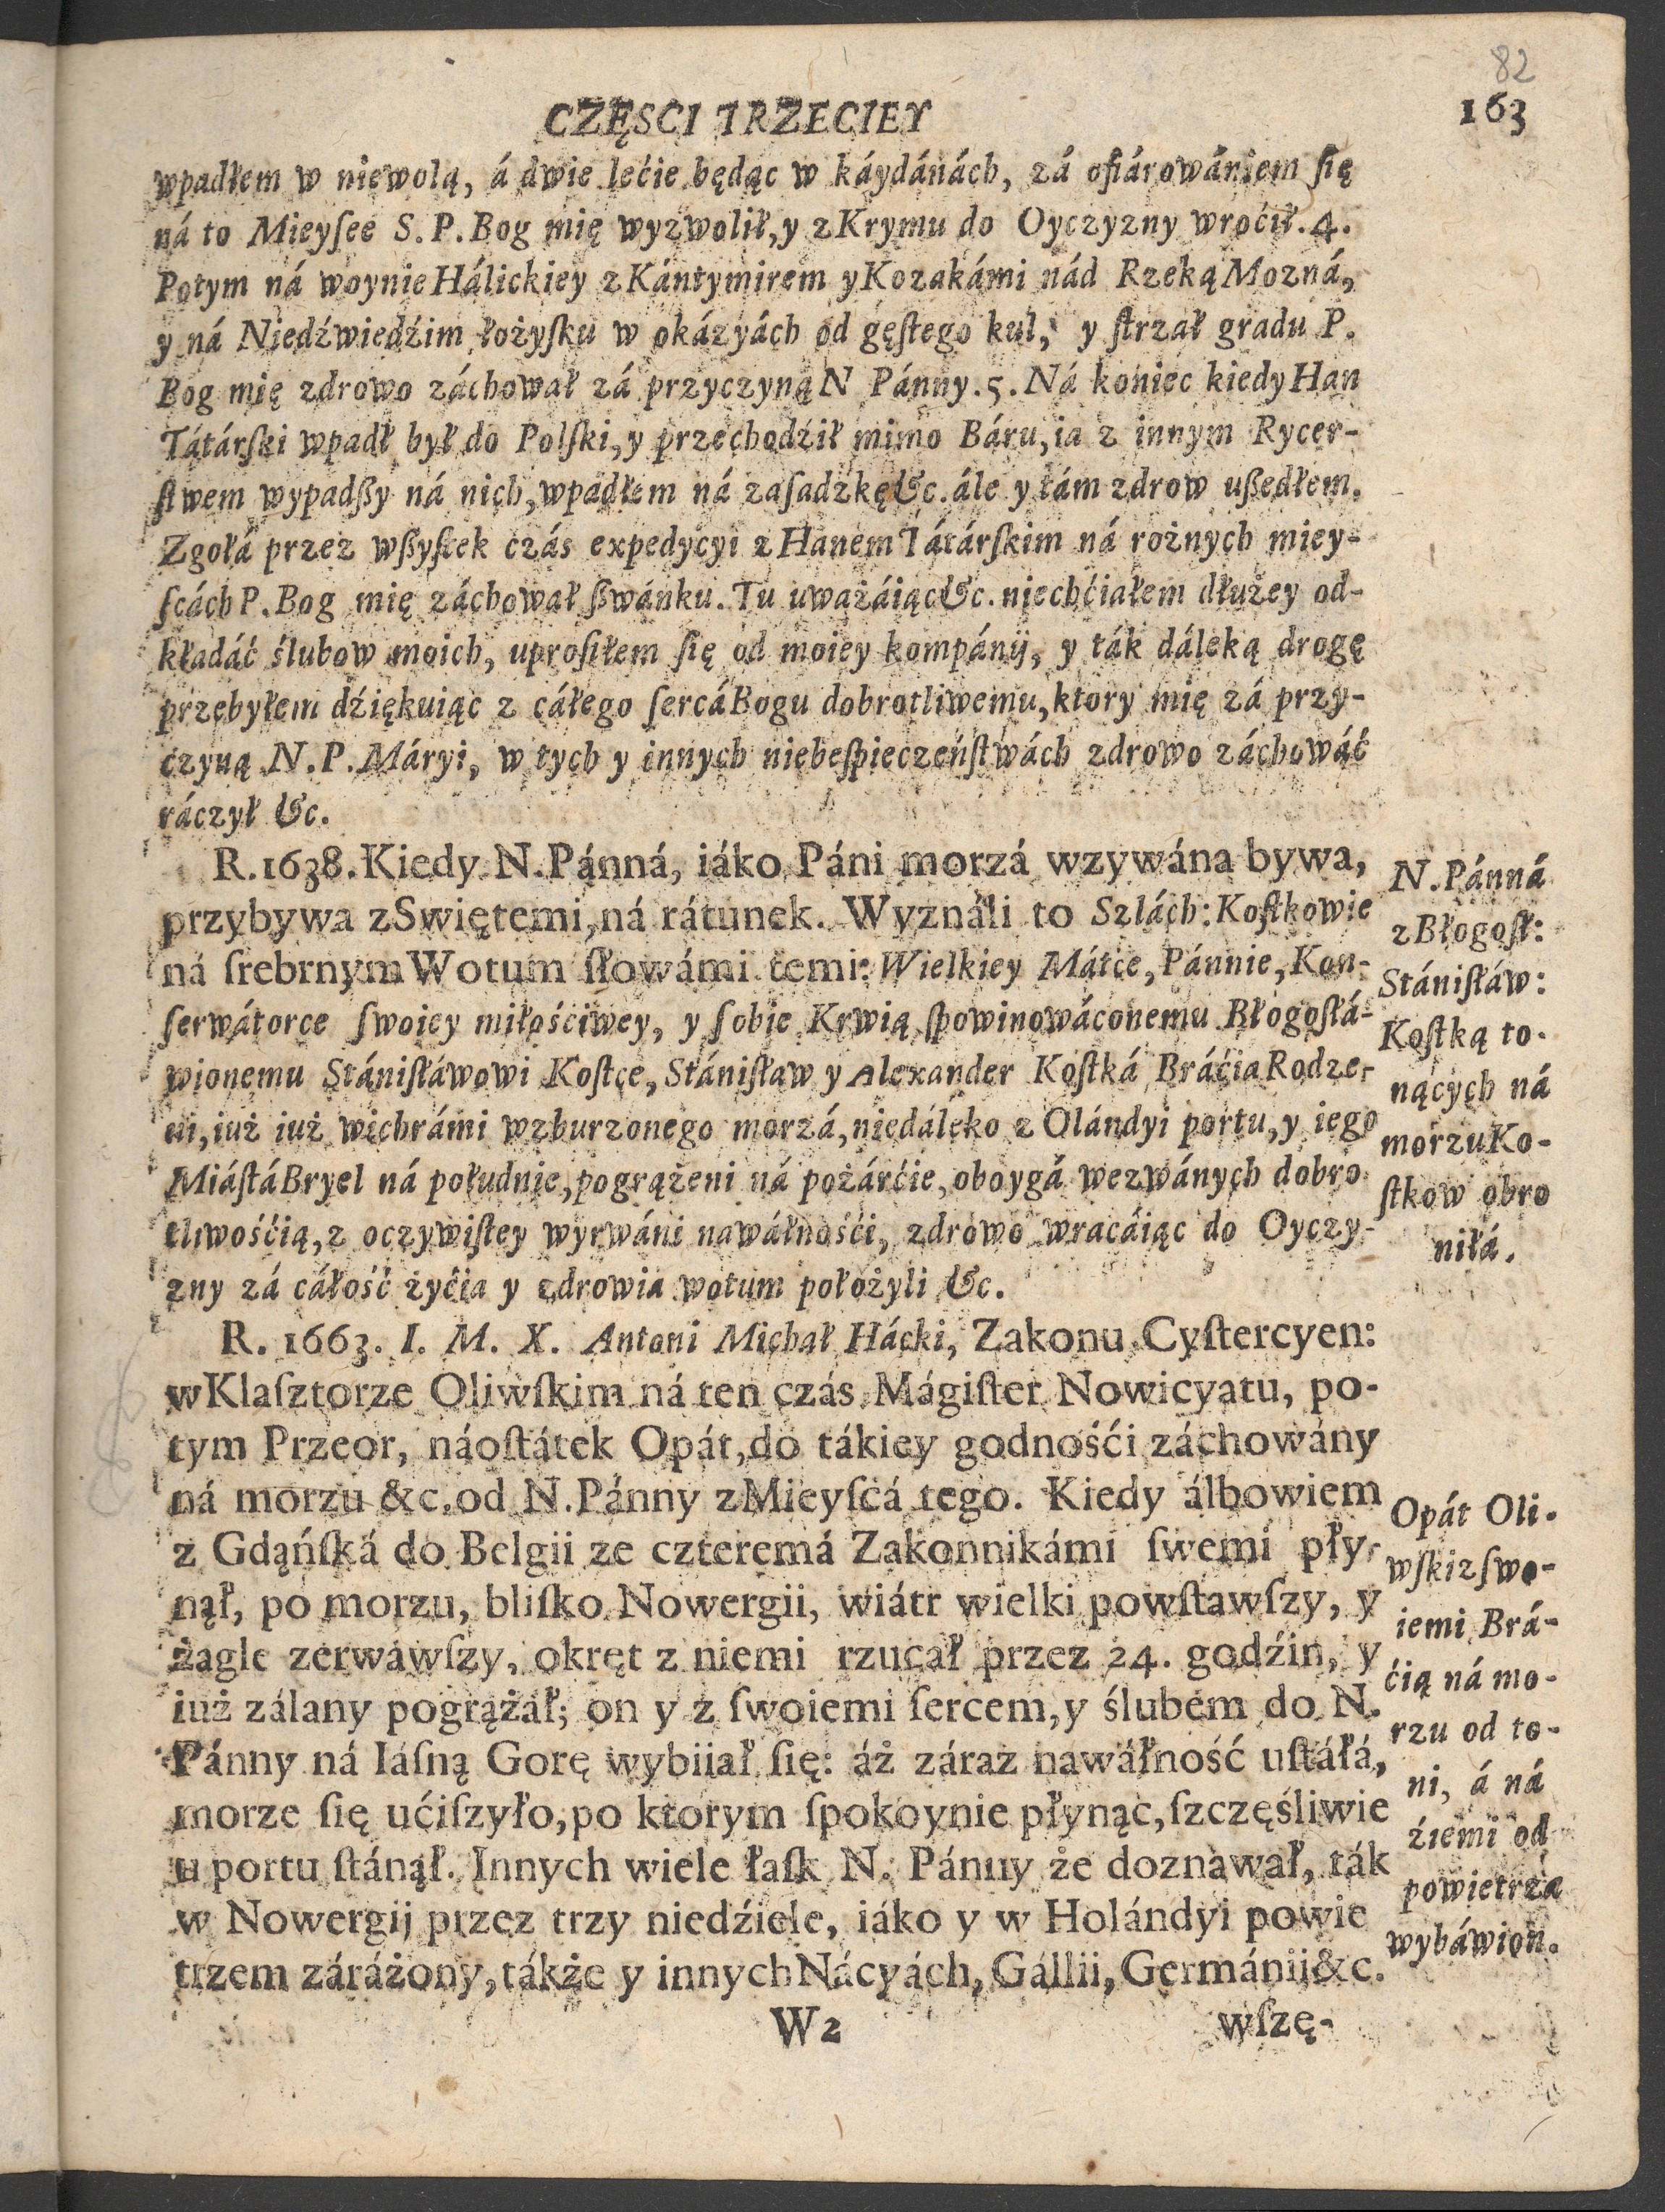 82
CZĘSCI TRZECIEY 163
wpadłem w niewolą, á dwie lećie będąc w káydánách, zá ofiárowániem ſię
ná to Mieyſee S. P. Bog mię wyzwolił, y z Krymu do Oyczyzny wroćił. 4.
Potym ná woynie Hálickiey z Kántymirem y Kozakámi nád Rzeką Mozná,
y ná Niedźwiedźim łożyſku w okázyách od gęſtego kul, y ſtrzał gradu P.
Bog mię zdrowo záchował zá przyczyną N Pánny. 5. Ná koniec kiedy Han
Tátárſki wpadł był do Polſki, y przechodźił mimo Báru, ia z innym Rycer-
ſtwem wypadßy ná nich, wpadłem ná zaſadzkę &c. ále y tám zdrow ußedłem.
Zgołá przez wßyſtek czás expedycyi z Hanem Tátárſkim ná rożnych miey-
ſcách P. Bog mię záchował ßwánku. Tu uważáiąc &c. niechćiałem dłużey od-
kładáć ślubow moich, uproſiłem ſię od moiey kompánij, y ták dáleką drogę
przebyłem dźiękuiąc z cáłego ſercá Bogu dobrotliwemu, ktory mię zá przy-
czyną N. P. Máryi, w tych y innych niebeſpieczeńſtwách zdrowo záchowáć
ráczył &c.
R. 1638. Kiedy N. Pánná, iáko Páni morzá wzywána bywa,
przybywa z Swiętemi, ná rátunek. Wyználi to Szlách: Koſtkowie
ná ſrebrnym Wotum ſłowámi temi: Wielkiey Mátce, Pánnie, Kon-
ſerwátorce ſwoiey miłośćiwey, y ſobie Krwią ſpowinowáconemu Błogoſłá-
wionemu Stániſłáwowi Koſtce, Stániſław y Alexander Koſtká Bráćia Rodze-
ni, iuż iuż wichrámi wzburzonego morzá, niedáleko z Olándyi portu, y iego
Miáſtá Bryel ná południe, pogrążeni ná pożárćie, oboygá wezwánych dobro-
tliwośćią, z oczywiſtey wyrwáni nawáłnośći, zdrowo wracáiąc do Oyczy-
zny zá cáłość żyćia y zdrowia wotum położyli &c.
N. Pánná
z Błogoſł:
Stániſłáw:
Koſtką to-
nących ná
morzu Ko-
ſtkow obro
niłá.
R. 1663. I. M. X. Antoni Michał Hácki, Zakonu Cyſtercyen:
w Klaſztorze Oliwſkim ná ten czás Mágiſter Nowicyatu, po-
tym Przeor, náoſtátek Opát, do tákiey godnośći záchowány
ná morzu &c. od N. Pánny z Mieyſcá tego. Kiedy álbowiem
z Gdąńſká do Belgii ze czteremá Zakonnikámi ſwemi pły-
nął, po morzu, bliſko Nowergii, wiátr wielki powſtawſzy, y
żagle zerwawſzy, okręt z niemi rzucał przez 24. godźin, y
iuż zálany pogrążał; on y z ſwoiemi ſercem, y ślubem do N.
Pánny ná Iáſną Gorę wybiiał ſię: áż záraz nawáłność uſtáłá,
morze ſię ućiſzyło, po ktorym ſpokoynie płynąc, ſzczęśliwie
u portu ſtánął. Innych wiele łaſk N. Pánny że doznawał, ták
w Nowergij przez trzy niedźiele, iáko y w Holándyi powie
trzem zárážony, tákże y innych Nácyách, Gállii, Germánii &c.
Opát Oli-
wſki z ſwo-
iemi Brá-
ćią ná mo-
rzu od to-
ni, á ná
źiemi od
powietrza
wybáwion.
W2 wſzę-